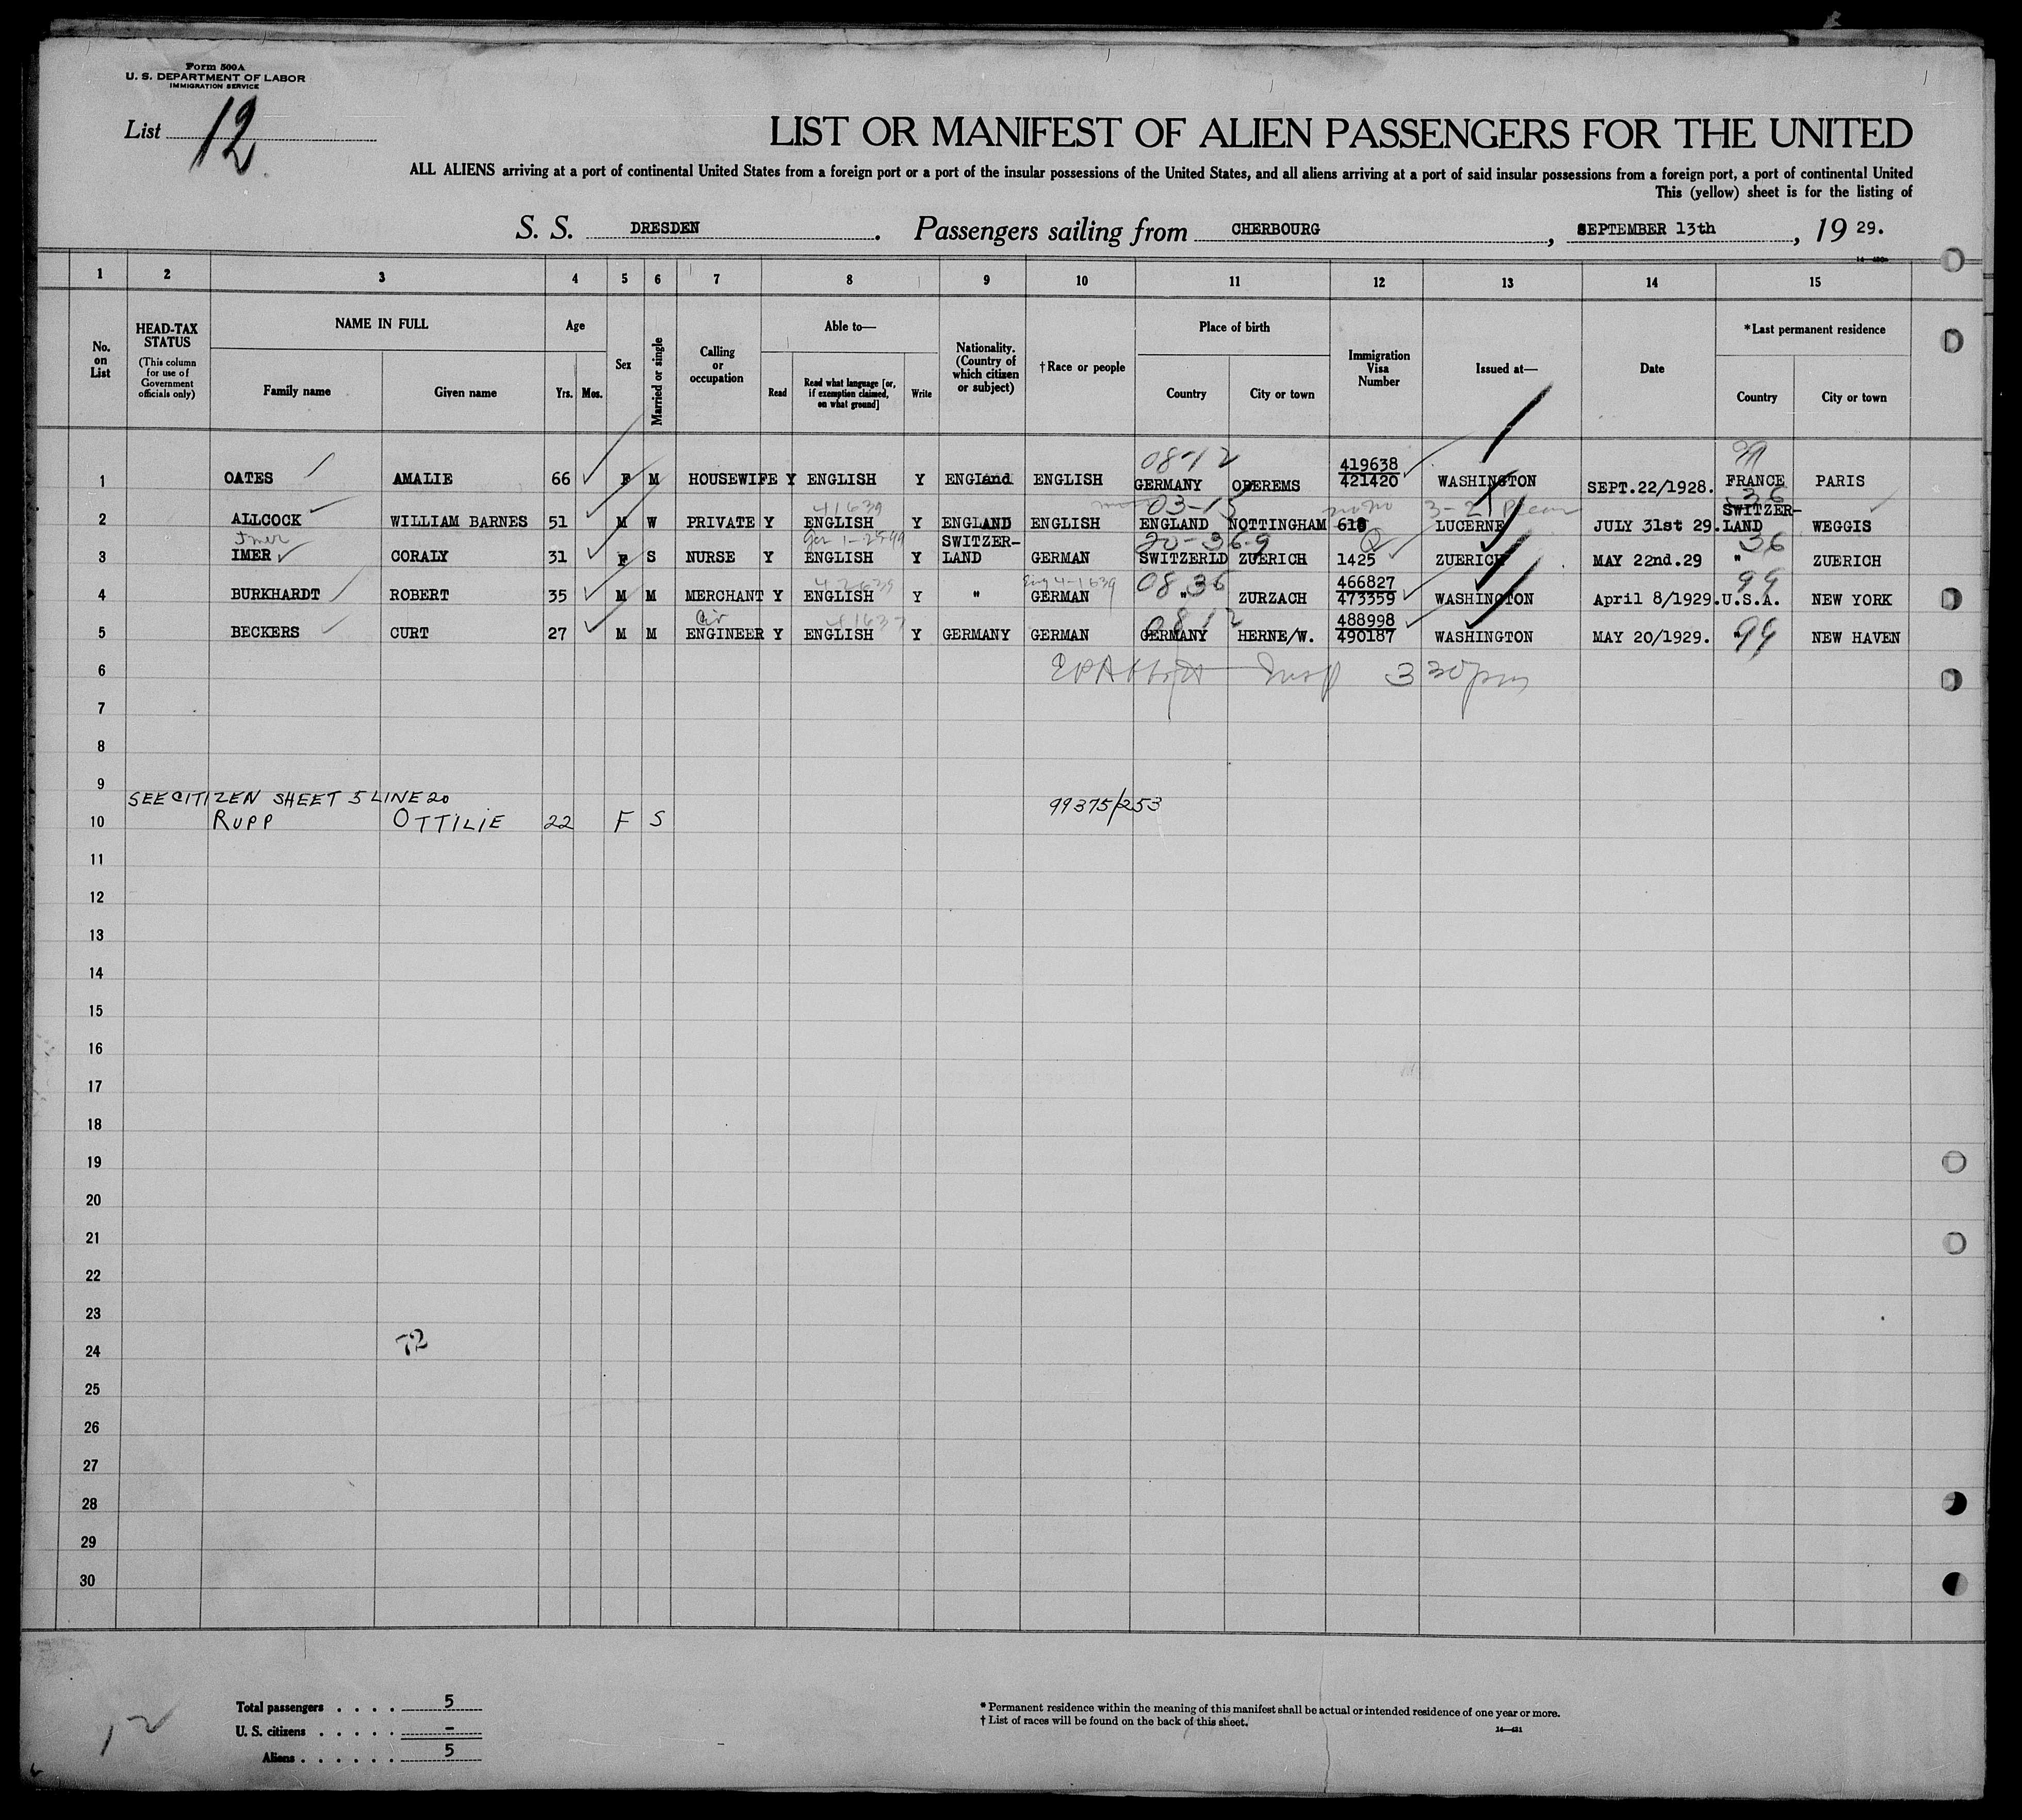 Form 500A
U. S. DEPARTMENT OF LABOR
IMMIGRATION SERVICE
List 12
LIST OR MANIFEST OF ALIEN PASSENGERS FOR THE UNITED
ALL ALIENS arriving at a port of continental United States from a foreign port or a port of the insular possessions of the United States, and all aliens arriving at a port of said insular possessions from a foreign port, a port of continental United
This (yellow) sheet is for the listing of
S. S. DRESDEN. Passengers sailing from CHERBOURG, SEPTEMBER 13th, 19 29.
1 2 3 4 5 6 7 8 9 10 11 12 13 14 15
No. on List
HEAD-TAX STATUS
(This column for use of Government officials only)
NAME IN FULL
Family name Given name
Age
Yrs. Mos.
Sex
Married or single
Calling or occupation
Able to—
Read
Read what language [or, if exemption claimed, on what ground]
Write
Nationality. (Country of which citizen or subject)
†Race or people
Place of birth
Country City or town
Immigration Visa Number
Issued at—
Date
*Last permanent residence
Country City or town
08-12
1 OATES AMALIE 66 F M HOUSEWIFE Y ENGLISH Y ENGland ENGLISH GERMANY OBEREMS 419638 421420 WASHINGTON SEPT.22/1928. FRANCE PARIS
41639 03-15 36
2 ALLCOCK WILLIAM BARNES 51 M W PRIVATE Y ENGLISH Y ENGLAND ENGLISH ENGLAND NOTTINGHAM 618 LUCERNE JULY 31st 29. SWITZER-LAND WEGGIS
Imer 20-36-9 36
3 IMER CORALY 31 F S NURSE Y ENGLISH Y SWITZER-LAND GERMAN SWITZERLD ZUERICH 1425 ZUERICH MAY 22nd.29 " ZUERICH
08 36 99
4 BURKHARDT ROBERT 35 M M MERCHANT Y ENGLISH Y " GERMAN " ZURZACH 466827 473359 WASHINGTON April 8/1929. U.S.A. NEW YORK
0812 99
5 BECKERS CURT 27 M M ENGINEER Y ENGLISH Y GERMANY GERMAN GERMANY HERNE/W. 488998 490187 WASHINGTON MAY 20/1929. " NEW HAVEN
6 Insp 3 30 pm
7
8
9
SEE CITIZEN SHEET 5 LINE 20 99375/253
10 RUPP OTTILIE 22 F S
11
12
13
14
15
16
17
18
19
20
21
22
23
24 72
25
26
27
28
29
30
12
Total passengers . . . . 5
U. S. citizens . . . . . –
Aliens . . . . . . 5
* Permanent residence within the meaning of this manifest shall be actual or intended residence of one year or more.
† List of races will be found on the back of this sheet.